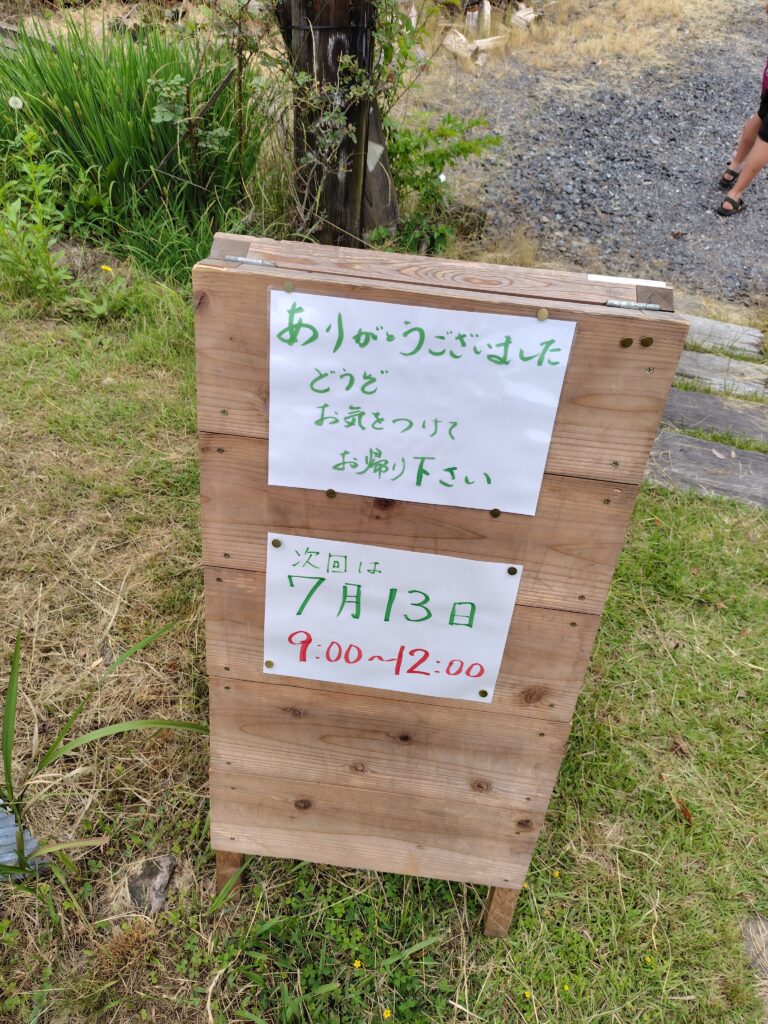 ありがとうございました
どうぞ
お気をつけて
お帰り下さい
次回は
7月13日
9:00〜12:00